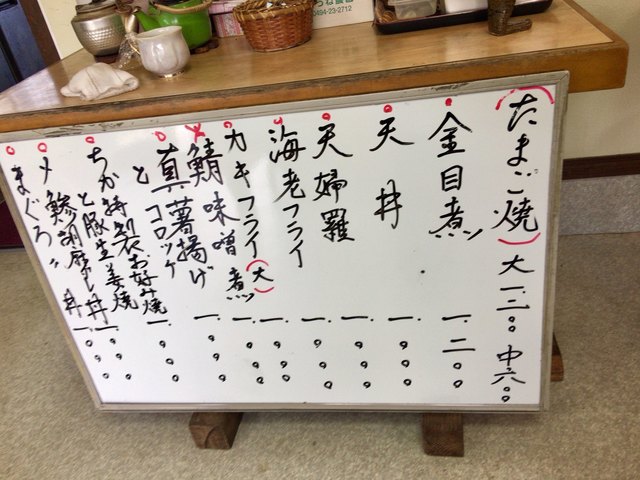 たまご焼 大 一二〇〇 中六〇〇
金目煮 一.二〇〇
天丼 一.〇〇〇
天婦羅 一.〇〇〇
海老フライ 一.〇〇〇
カキフライ(大) 一.〇〇〇
鯖味噌煮 一.〇〇〇
真薯揚げ
とコロッケ 一.〇〇〇
ちか特製お好み焼
と豚生姜焼 一.〇〇〇
〆鯵胡麻だし丼 一.〇〇〇
まぐろ〃 丼
0494-23-2712